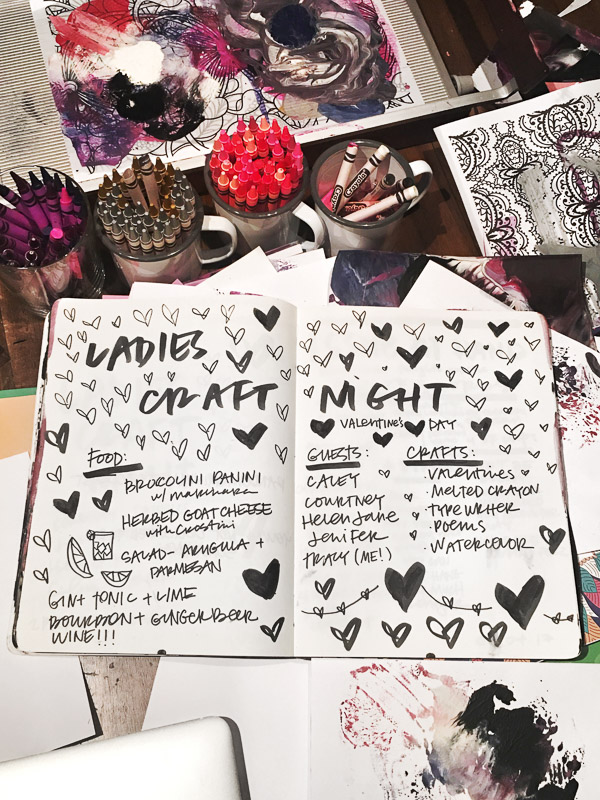 LADIES
CRAFT
NIGHT
VALENTINE'S DAY
FOOD:
BROCOLINI PANINI
w/ marinara
HERBED GOAT CHEESE
with crostini
SALAD - ARUGULA +
PARMESAN
GIN + TONIC + LIME
BOURBON + GINGER BEER
WINE!!!
GUESTS:
CALEY
COURTNEY
Helen Jane
Jenifer
TRACY (ME!)
CRAFTS:
· VALENTINES
· MELTED CRAYON
· TYPEWRITER
· POEMS
· WATERCOLOR
Crayola